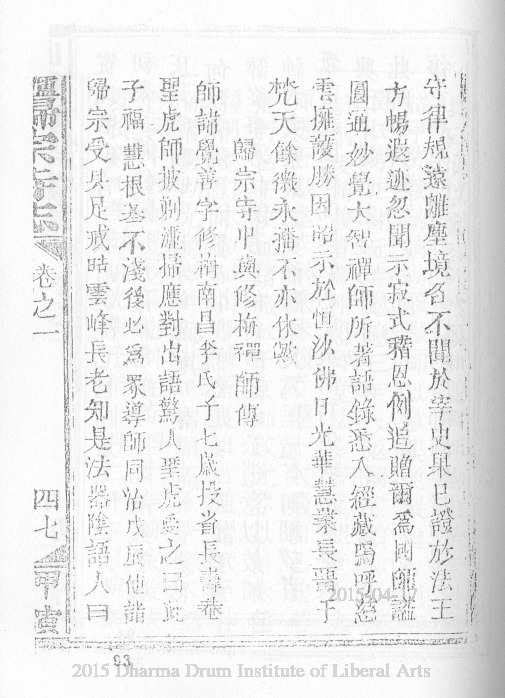 守律規遠離塵境名不聞於宰史果已證於法王
方暢遐迹忽聞示寂式稽恩例追贈爾為國師謚
圓通妙覺大智禪師所著語錄悉入經藏嗚呼慈
雲擁護勝因昭示於恒沙佛日光華慧業長垂于
梵天餘徽永播不亦休歟
歸宗寺中興修梅禪師傳
師諱覺善字修梅南昌李氏子七歲投省長壽菴
聖虎師披剃灑掃應對出語驚人聖虎之曰此
子福慧根基不淺後必為眾導師同治戊辰使詣
歸宗受具足戒時雲峰長老知是法器陰語人曰
歸宗寺志
卷之一
四七
甲寅
93
2015-04-17
2015 Dharma Drum Institute of Liberal Arts